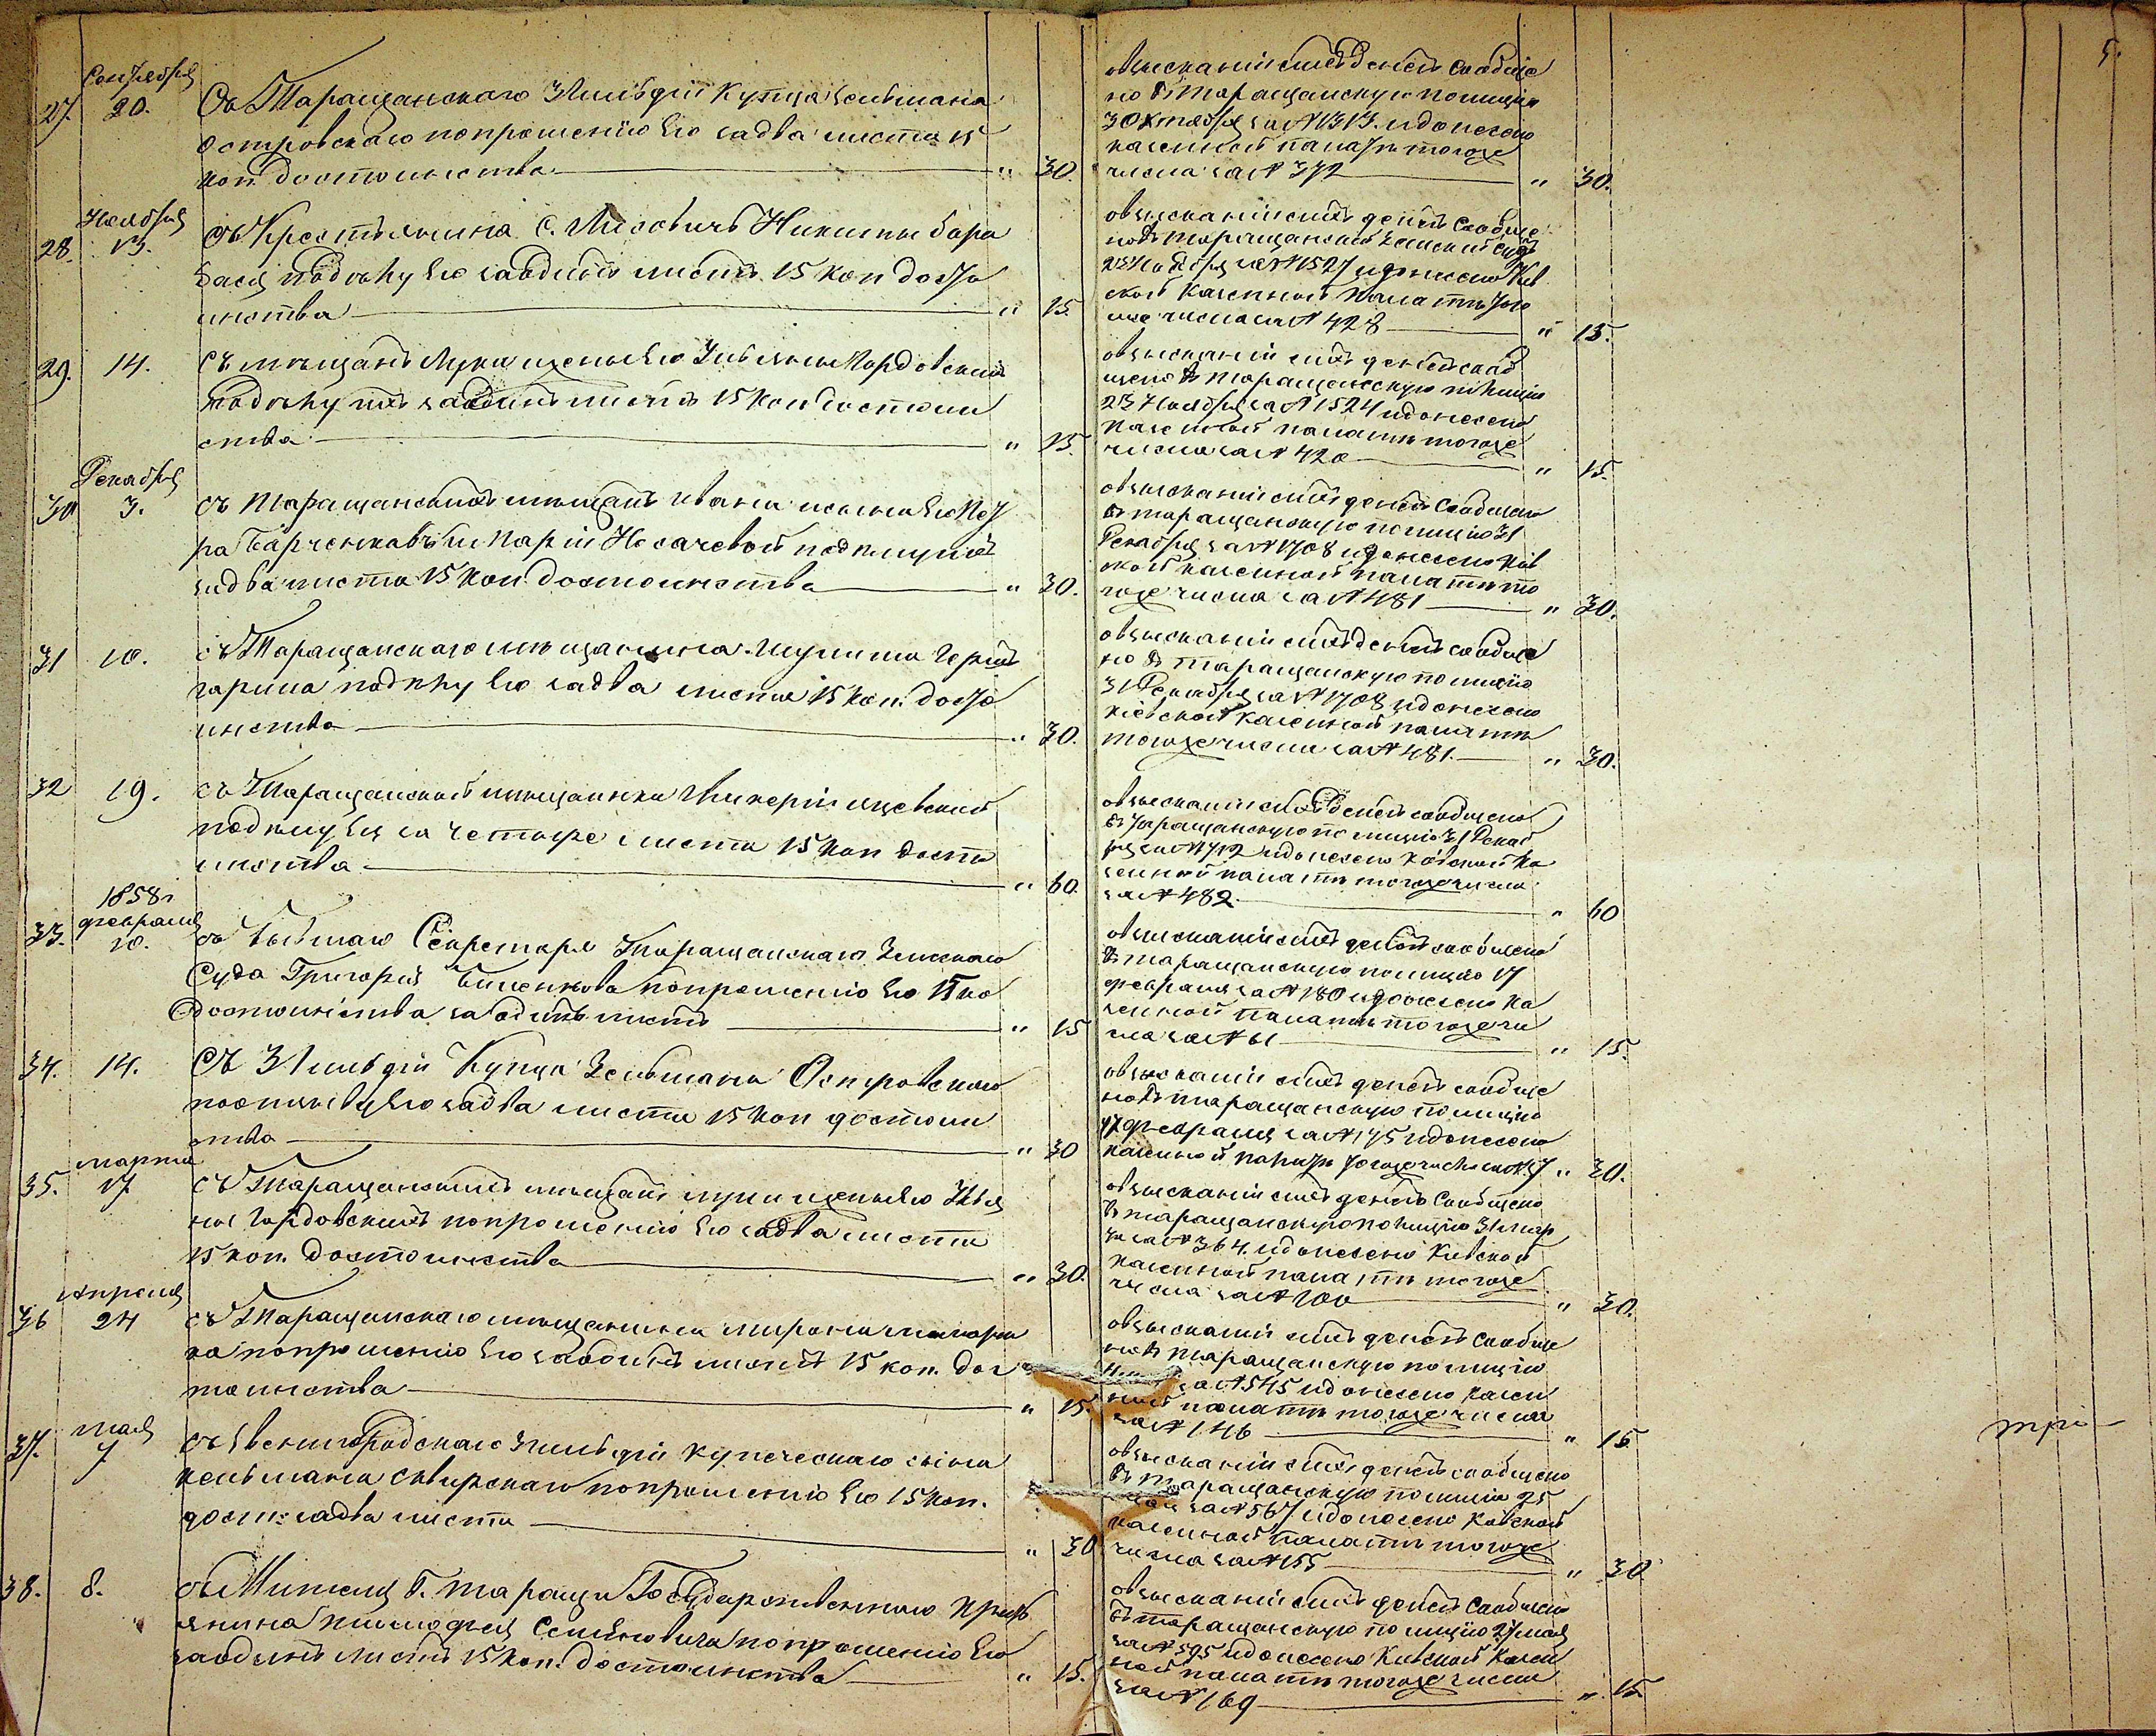 5.
Сентября
27. 20. Съ Таращанского 3 Гильдіи Купца Зельмана
Островскаго попрошенію Его за два листа 15
коп. достоинства " 30.
о взысканіи сихъ денегъ сообще
но въ таращанскую полицію
30ктября за № 1313. и донесено
казенной палатѣ тогоже
числа за № 372 " 30.
Ноября
28. 13. Съ Крестьянина С. Никиты
подѣлу Его за одинъ листъ 15 коп досто
инства " 15.
о взысканіи сихъ денегъ сообще
но въ таращанскій Земскій судъ
за № 1527 и донесено Кіев
ской Казенной Палатѣ того
же числа за № 428 " 15.
29. 14. Съ мѣщанъ Луки и жены Его Ульяны Гордовскихъ
подѣлу ихъ за одинъ листъ 15 коп достоин
ства " 15.
о взысканіи сихъ денегъ сооб
щено въ таращанскую полицію
23 Ноября за № 1524 и донесено
казенной палатѣ тогоже
числа за № 420 " 15.
Декабря
30 3. съ Таращанскихъ мѣщанъ Ивана
за два листа 15 коп. достоинства " 30.
о взысканіи сихъ денегъ сообщено
въ таращанскую полицію 31
Декабря за № 1708 и донесено Кіев
ской казенной палатѣ то
гоже числа за № 481 " 30.
31 10. съ Таращанскаго мѣщанина
подѣлу Его за два листа 15 коп. досто
инства " 30.
о взысканіи сихъ денегъ сообще
но въ таращанскую полицію
31 Декабря за № 1708 и донесено
Кіевской казенной палатѣ
тогоже числа за № 481. " 30.
32 19. съ Таращанской мѣщанки
подѣлу Ея за четыре листа 15 коп досто
инства " 60.
о взысканіи сихъ денегъ сообщено
въ таращанскую полицію 31 Декаб
ря за № 1712 и донесено Кіевской Ка
зенной палатѣ тогоже числа
за № 482. " 60
1858 г
февраля
33. 10. съ бывшаго Секретаря Таращанскаго Земскаго
Суда Григорія попрошенію Его 15 ко
достоинства за одинъ листъ " 15
о взысканіи сихъ денегъ сообщено
въ таращанскую полицію 17
февраля за № 180 и донесено ка
зенной палатѣ тогоже чи
сла за № 61 " 15.
34. 14. Съ 3 Гильдіи Купца Зельмана Островскаго
Его за два листа 15 коп достоин
ства " 30
о взысканіи сихъ денегъ сообще
но въ таращанскую полицію
17 февраля за № 175 и донесено
казенной палатѣ тогоже числа за № 57 " 30.
марта
35. 17 съ Таращанскихъ мѣщанъ Луки и жены Его Улья
ны Гордовскихъ попрошенію Его за два листа
15 коп. достоинства " 30.
о взысканіи сихъ денегъ сообщено
въ таращанскую полицію 31 мар
та за № 364. и донесено Кіевской
казенной палатѣ тогоже
числа за № 100 " 30.
Апреля
36 24 съ Таращанскаго мѣщанина Мирона
попрошенію Его за одинъ листъ 15 коп. дос
тоинства " 15.
о взысканіи сихъ денегъ сообще
но въ таращанскую полицію
за № 545 и донесено казен
ной палатѣ тогоже числа
за № 146 " 15
мая
37. 7 съ Звенигородскаго 3 гильдіи купеческаго сына
Кельмана Сквирскаго попрошенію Его 15 коп.
дост: за два листа " 30
о взысканіи сихъ денегъ сообщено
въ таращанскую полицію 25
мая за № 567 и донесено Кіевской
казенной палатѣ тогоже
числа за № 155 " 30
38. 8. съ Жителя Г. Таращи Государственнаго Крест
янина Тимофея Семеновича попрошенію Его
за одинъ листъ 15 коп. достоинства " 15.
о взысканіи сихъ денегъ сообщено
въ таращанскую полицію 27 мая
за № 595 и донесено Кіевской Казен
ной палатѣ тогоже числа
за № 169 " 15.
три